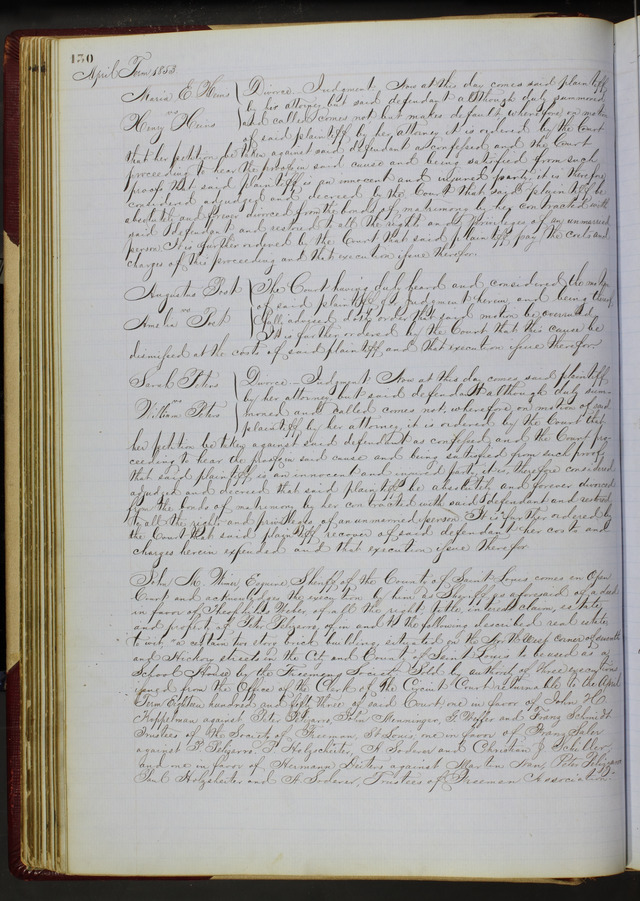 130
April Term 1853
Maria E. Heins
vs
Henry Heins
Divorce. Judgment. Now at this day comes said plaintiff
by her attorney but said defendant although duly summoned
and called comes not but makes default, wherefore on motion
of said plaintiff by her attorney it is ordered by the Court
that her petition be taken against said defendant as confessed and the Court
proceeding to hear the proofs in said cause and being satisfied from such
proof that said plaintiff is an innocent and injured party, it is therefore
considered adjudged and decreed by the Court that said plaintiff be
absolutely and forever divorced from the bonds of matrimony by her contracted with
said defendant and restored to all the rights and privileges of an unmarried
person. It is further ordered by the Court that said plaintiff pay the costs and
charges of this proceeding and that execution issue therefor.
Augustus Post
vs
Amelia Post
The Court having duly heard and considered the motion
of said plaintiff for judgment herein and being thereof
fully advised doth order that said motion be overruled,
It is further ordered by the Court that this cause be
dismissed at the costs of said plaintiff, and that execution issue therefor
Sarah Peters
vs
William Peters
Divorce - Judgment Now at this day comes said plaintiff
by her attorney but said defendant although duly sum-
moned and called comes not, wherefore, on motion of said
plaintiff by her attorney it is ordered by the Court that
her petition be taken against said defendant as confessed, and the Court pro-
ceeding to hear the proofs in said cause and being satisfied from such proof
that said plaintiff is an innocent and injured party, it is therefore considered
adjudged and decreed that said plaintiff be absolutely and forever divorced
from the bonds of matrimony by her contracted with said defendant and restored
to all the rights and privileges of an unmarried person. It is further ordered by
the Court that said plaintiff recover of said defendant her costs and
charges herein expended and that execution issue therefor
John M. Wimer Esquire, Sheriff of the County of Saint Louis comes in Open
Court and acknowledges the execution by him as Sheriff as aforesaid of a deed
in favor of Theophilus of all the right, title, interest, claim, estate,
and property of Peter of in and to the following described real estate,
to wit, "a certain two story brick building, situated on the North West corner of
and Hickory streets in the City and County of Saint Louis to be used as a
School House by the Freemens Society" Sold by authority of three executions
issued from the Office of the Clerk of the Circuit Court returnable to the April
Term Eighteen hundred and fifty three of said Court, one in favor of John H.
Koppelman against Peter John Menninger, F. and Franz Schmidt
Trustees of the Society of Freemen, St Louis, one in favor of Franz Saler
against P. P. Holzscheiter, A. Soderer and Christian J. Schuller,
and one in favor of Hermann against Martin Peter
Paul Holzscheiter and A. Soderer, Trustees of Freemen Association.